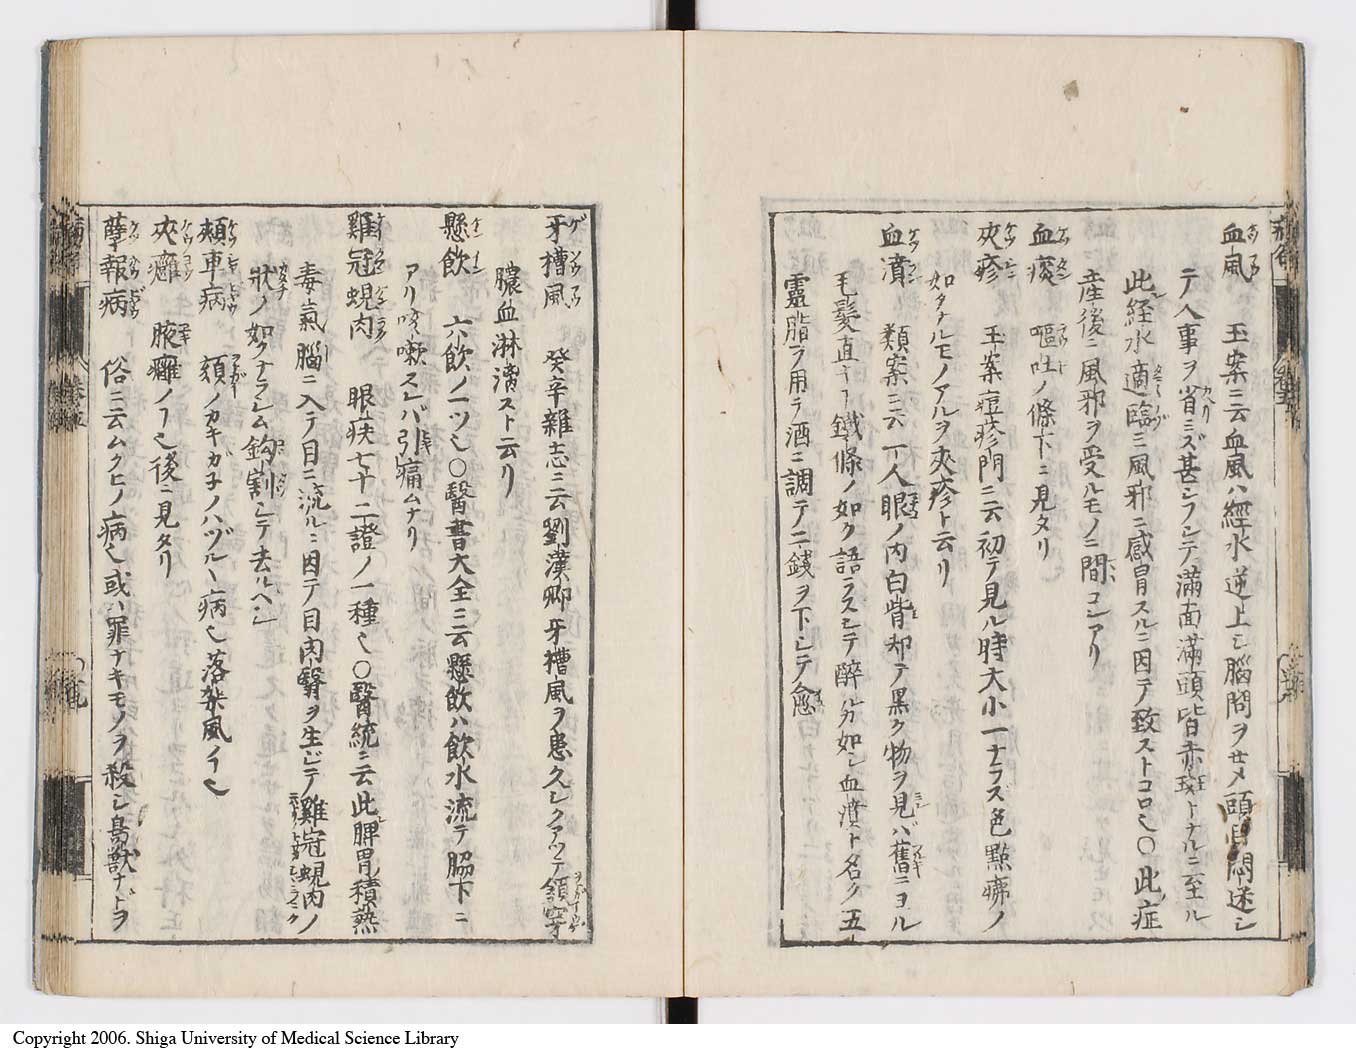 血風 玉案ニ云血風ハ經水逆上シ腦問ヲせメ頭目悶迷シ
テ人事ヲ省ミズ甚シフシテ滿面滿頭皆赤斑トナルニ至ル
此経水適臨ミ風邪ニ感冒スルニ因テ致ストコロ也〇此症
産後ニ風邪ヲ受ルモノニ間コレアリ
血痰 嘔吐ノ條下ニ見タリ
夾疹 玉案痘疹門ニ云初テ見ル時大小一ナラズ色點疿ノ
如クナルモノアルヲ夾疹ト云リ
血潰 類案ニ云一人眼ノ内白眥却テ黒ク物ヲ見ハ舊ニヨル
毛髮直キヿ鐵條ノ如ク語ラスシテ醉カ如シ血潰ト名ク五
靈脂ヲ用テ酒ニ調テ二錢ヲ下シテ愈
牙槽風 癸辛雜志ニ云劉漢卿牙槽風ヲ患久シクアツテ頷穿
膿血淋漓スト云リ
懸飲 六飲ノ一ツ也〇醫書大全ニ云懸飲ハ飲水流テ脇下ニ
アリ咳嗽スレバ引痛ムナリ
雞冠蜆肉 眼疾七十二證ノ一種也〇醫統ニ云此脾胃積熱
毒氣腦ニ入テ目ニ流ルニ因テ目肉翳ヲ生ジテ雞冠蜆肉ノ
狀ノ如クナラシム鈎割シテ去ルヘシ
頰車病 頰ノカキガ子ノハヅルヽ病也落架風ノヿ也
夾癰 腋癰ノヿ也後ニ見タリ
孽報病 俗ニ云ムクヒノ病也或ハ罪ナキモノヲ殺シ鳥獸ナドヲ
Copyright 2006. Shiga University of Medical Science Library